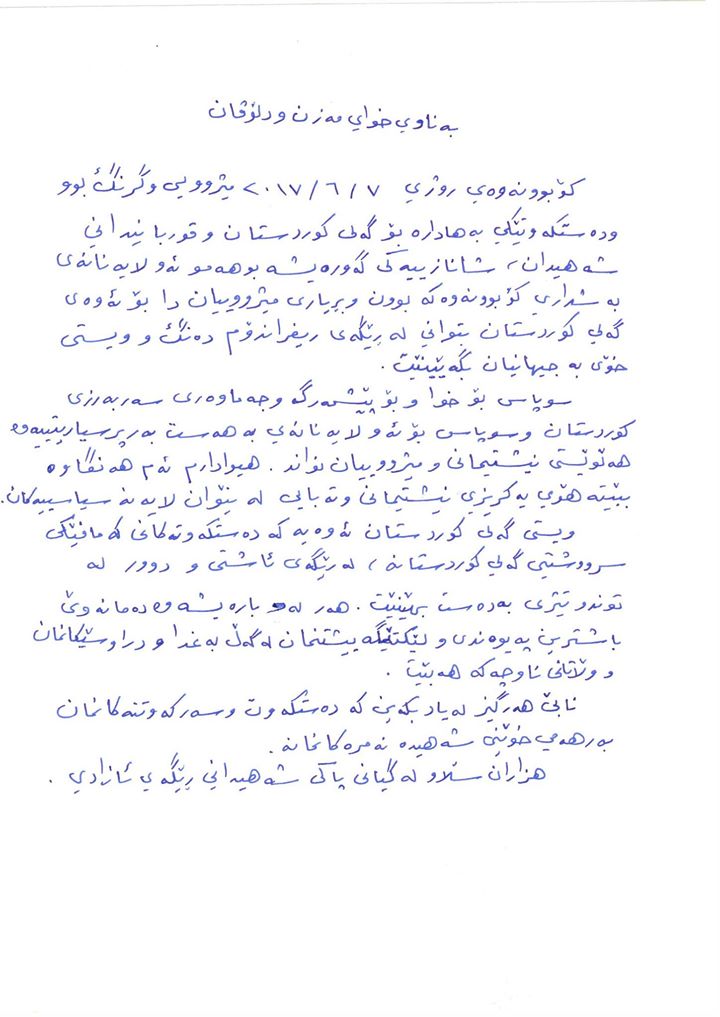 بەناوي خواي مەزن و دلۆڤان
كۆبوونەوەي رۆژي ٢٠١٧/٦/٧ مێژوویی و گرنگ بوو
ودەستكەوتێكي بەهادارە بۆ گەلی كوردستان و قوربانیداني
شەهیدان، شانازییەكی گەورەیشە بو هەمو ئەو لایەنانەی
بەشداري كۆبوونەوەكە بوون وبڕیاری مێژووییان دا بۆ ئەوەی
گەلي كوردستان بتواني لە رێگەی ریفراندۆم دەنگ و ویستی
خۆی بە جیهانیان بگەیێنێت.
سوپاس بۆ خوا و بۆ پێشمەرگە وجەماوەری سەربەرزی
كوردستان وسوپاس بۆ ئەو لایەنانەي بە هەست بەرپرسیاریێتییەوە
هەڵوێستی نیشتیمانی و مێژووییان نواند. هیوادارم ئەم هەنگاوە
ببێتە هۆی یەكریزی نیشتیمانی وتەبایی لە نێوان لایەنە سیاسییەكان.
ویستی گەلی كوردستان ئەوەیە كە دەستكەوتەكانی كە مافێكی
سرووشتیی گەلي كوردستانە، لەرێگەی ئاشتی و دوور لە
توندوتیژی بەدەست بهێنێت. هەر لەو بارەیشەوە دەمانەوێ
باشترین پەیوەندی و لێكتێگەییشتنمان لەگەڵ بەغدا و دراوسێكانمان
و وڵاتانی ناوچەكە هەبێت.
نابێ هەرگیز لەیاد بكەین كە دەستكەوت وسەركەوتنەكانمان
بەرهەمی خوێنی شەهیدە نەمرەكانمانە.
هزاران سڵاو لە گیانی پاكی شەهیداني رێگەي ئازادي.